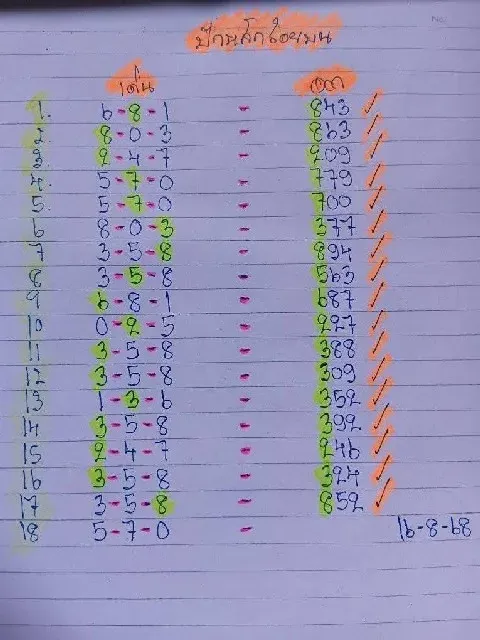 เด่น ออก
1. 6-8-1 - 843 ✓
2. 8-0-3 - 863 ✓
3. 2-4-7 - 209 ✓
4. 5-7-0 - 779 ✓
5. 5-7-0 - 700 ✓
6 8-0-3 - 377 ✓
7 3-5-8 - 894 ✓
8 3-5-8 - 563 ✓
9 6-8-1 - 687 ✓
10 0-2-5 - 227 ✓
11 3-5-8 - 388 ✓
12 3-5-8 - 309 ✓
13 1-3-6 - 352 ✓
14 3-5-8 - 392 ✓
15 2-4-7 - 246 ✓
16 3-5-8 - 324 ✓
17 3-5-8 - 852 ✓
18 5-7-0 - 16-8-68